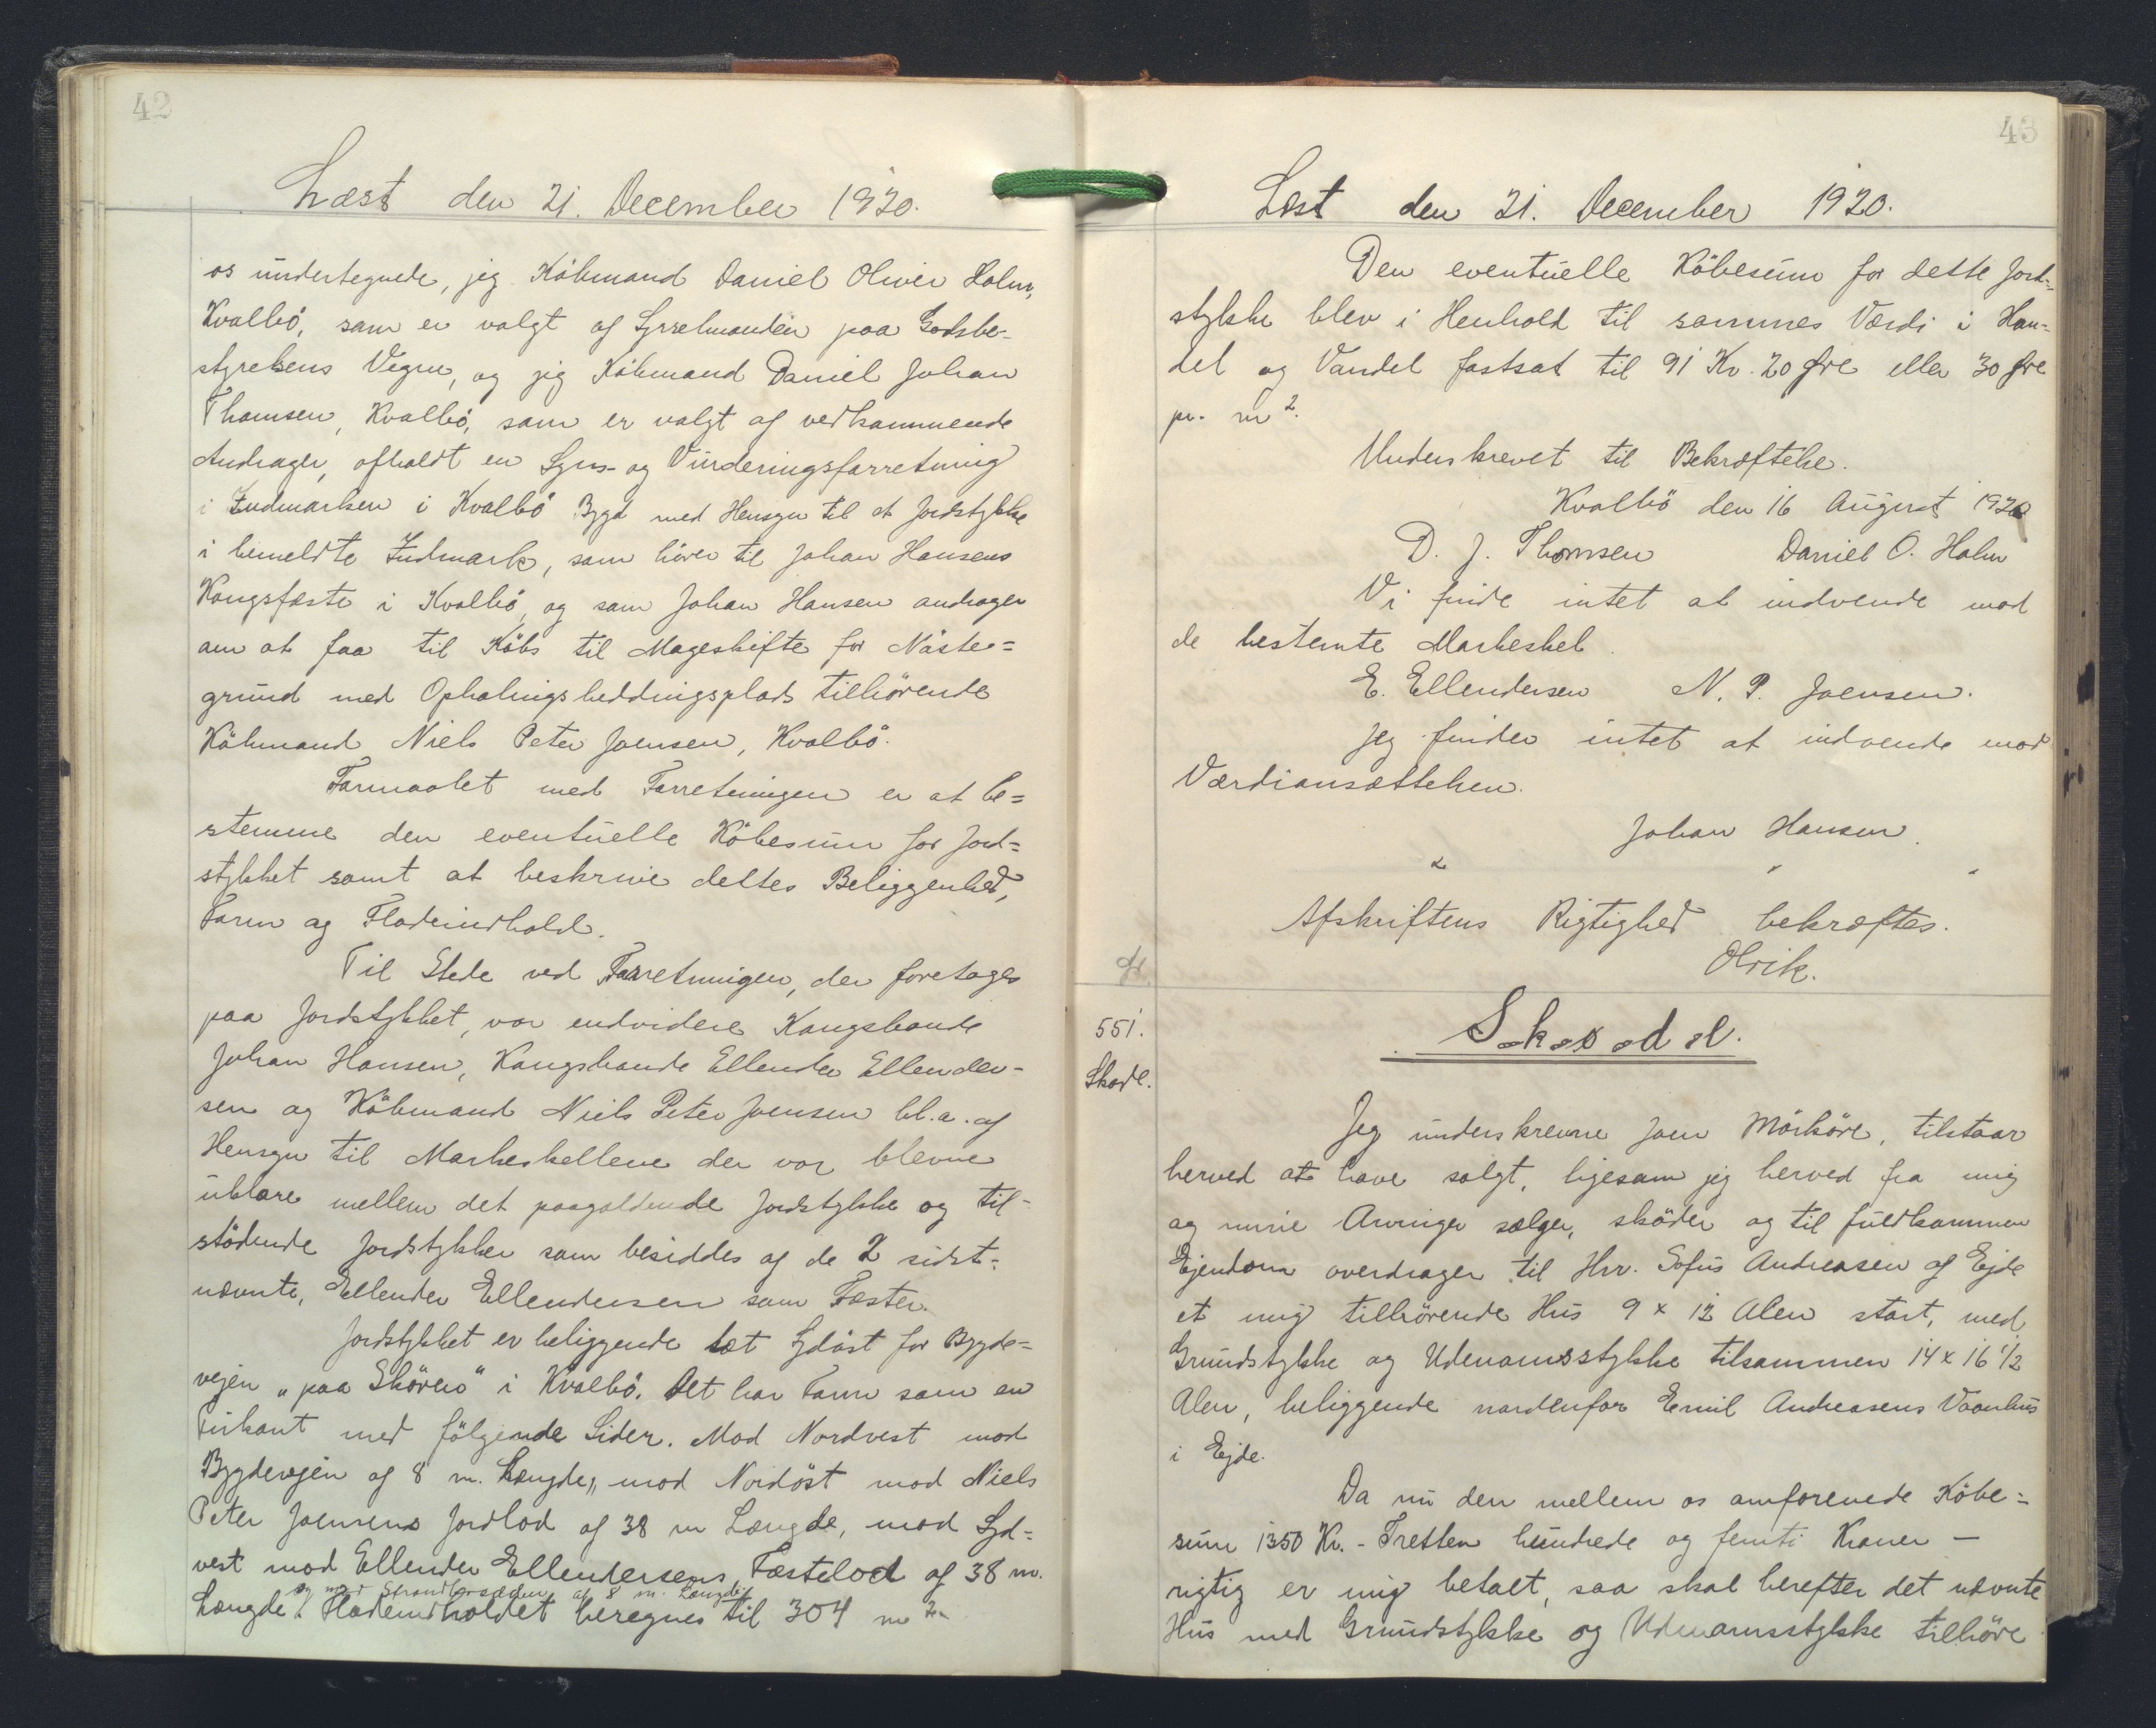 42
Læst den 21. December 1920.
os undertegnede, jeg Köbmand Daniel Oliver Holm,
Kvalbö, som er valgt af Sysselmanden paa Godsbe-
styrelsens Vegne, og jeg Köbmand Daniel Johan
Thomsen, Kvalbö, som er valgt af vedkommende
Andrager, afholdt en Syns- og Vurderingsforretning
i Indmarken i Kvalbö Bygd med Hensyn til et Jordstykke
i bemeldte Indmark, som hörer til Johan Hansens
Kongsfæste i Kvalbö, og som Johan Hansen andrager
om at faa til Köbs til Mageskifte for Nöste=
grund med Ophalingsbeddingsplads tilhörende
Köbmand Niels Peter Joensen, Kvalbö.
Formaalet med Forretningen er at be=
stemme den eventuelle Köbesum for Jord=
stykket samt at beskrive dettes Beliggenhed,
Form og Fladeindhold.
Til Stede ved Forretningen, der foretages
paa Jordstykket, var endvidere Kongsbonde
Johan Hansen, Kongsbonde Ellender Ellender-
sen og Köbmand Niels Peter Joensen bl.a. af
Hensyn til Markeskellene der var blevne
uklare mellem det paagældende Jordstykke og til-
stödende Jordstykker som besiddes af de 2 sidst-
nævnte, Ellender Ellendersen som Fæster.
Jordstykket er beliggende tæt Sydöst for Bygde=
vejen „paa Skörinò" i Kvalbö. Det har Form som en
Firkant med fölgende Sider. Mod Nordvest mod
Bygdevejen af 8 m. Længde, mod Nordöst mod Niels
Peter Joensens Jordlod af 38 m Længde, mod Syd=
vest mod Ellender Ellendersens Fæstelod af 38 m.
og mod Strandbredden af 8 m. Længde.
Længde. Fladeindholdet beregnes til 304 m2.
43
Læst den 21. December 1920.
Den eventuelle Köbesum for dette Jord=
stykke blev i Henhold til sammes Værdi i Han=
del og Vandel fastsat til 91 Kr. 20 Øre eller 30 Øre
pr. m2.
Underskrevet til Bekræftelse.
Kvalbö den 16 August 1920
D. J. Thomsen Daniel O. Holm
Vi finde intet at indvende mod
de bestemte Markeskel.
E. Ellendersen N. P. Joensen.
Jeg finder intet at indvende mod
Værdiansættelsen.
Johan Hansen.
Afskriftens Rigtighed bekræftes.
Olrik.
551.
Skøde.
Skøde.
Jeg underskrevne Joen Mörköre, tilstaar
herved at have solgt, ligesom jeg herved fra mig
og mine Arvinger sælger, sköder og til fuldkommen
Ejendom overdrager til Hrr. Sofus Andreasen af Ejde
et mig tilhörende Hus 9 x 12 Alen stort, med
Grundstykke og Udenomsstykke tilsammen 14 x 16 1/2
Alen, beliggende nordenfor Emil Andreasens Vaanhus
i Ejde.
Da nu den mellem os omforenede Köbe=
sum 1350 Kr. - Tretten hundrede og femti Kroner —
rigtig er mig betalt, saa skal herefter det nævnte
Hus med Grundstykke og Udenomsstykke tilhöre